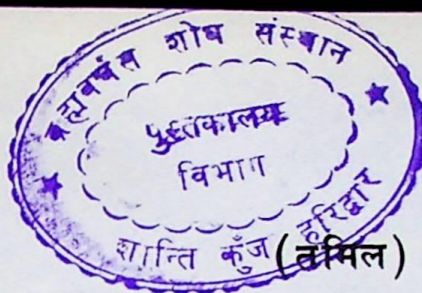 ब्रह्मवर्चस शोध संस्थान
पुस्तकालय
विभाग
शान्ति कुँज हरिद्वार
(तमिल)